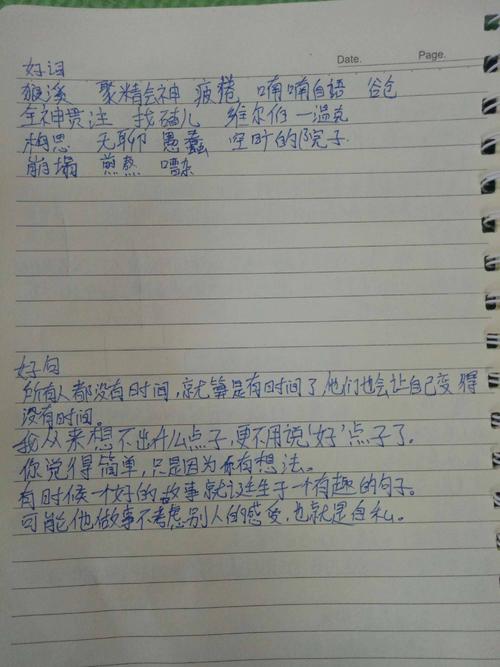 Date. Page.
好词
狼溪 聚精会神 疲倦 喃喃自语
全神贯注 找碴儿 维尔伯一温克
构思 无聊 愚蠢 空旷的院子
崩塌 煎熬 嘈杂
好句
所有人都没有时间,就算是有时间了,他们也会让自己变得
没有时间。
我从来想不出什么点子,更不用说'好'点子了。
你觉得简单,只是因为你有想法。
有时候一个好的故事就诞生于一个有趣的句子。
可能他做事不考虑别人的感受,也就是自私。